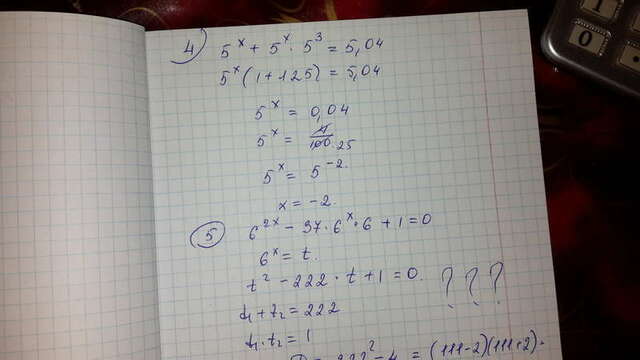 4) 5^x + 5^x · 5^3 = 5,04
5^x (1 + 125) = 5,04
5^x = 0,04
5^x = 4/100 25
5^x = 5^-2.
x = -2.
5 6^2x - 37 · 6^x · 6 + 1 = 0
6^x = t.
t^2 - 222 · t + 1 = 0. ? ? ?
t1 + t2 = 222
t1 · t2 = 1
D = 222^2 - 4 = (111-2)(111+2) ·
1
0